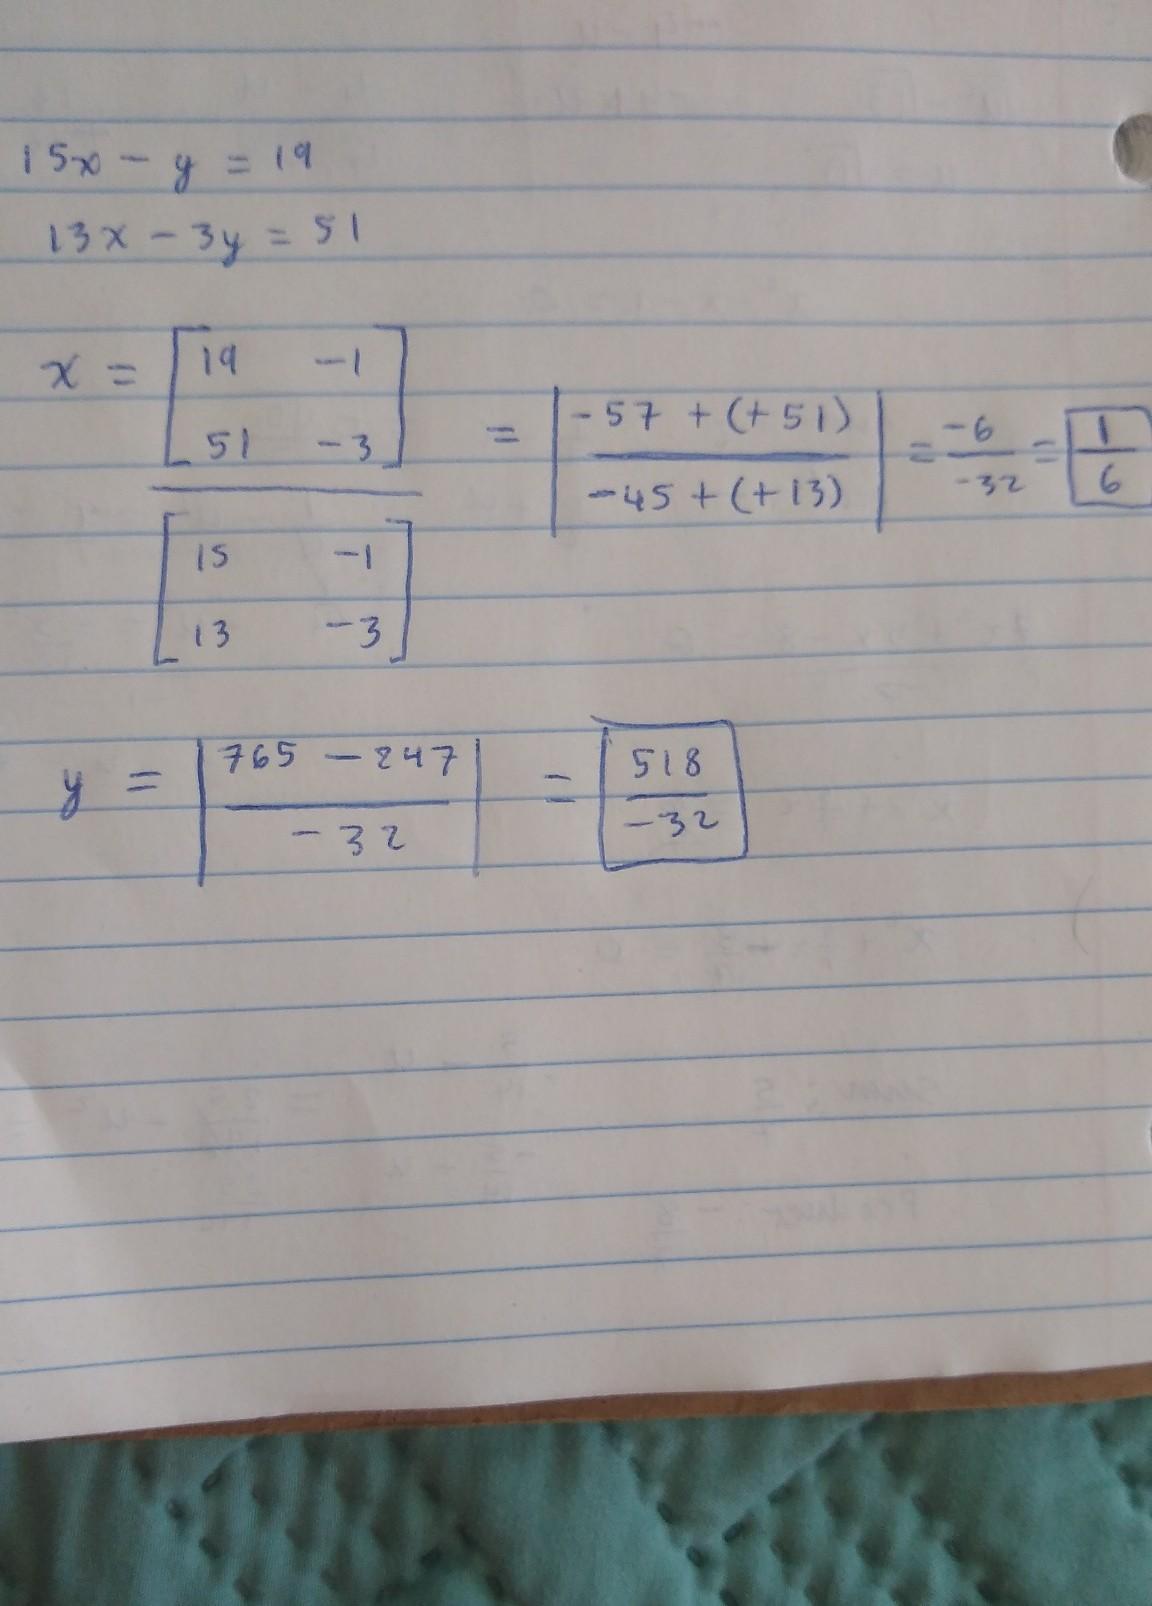 15x - y = 19
13x - 3y = 51
x = [19 -1
51 -3]
/
[15 -1
13 -3]
= |-57 + (+51) / -45 + (+13)| = -6 / -32 = 1 / 6
y = |765 - 247 / -32| = 518 / -32